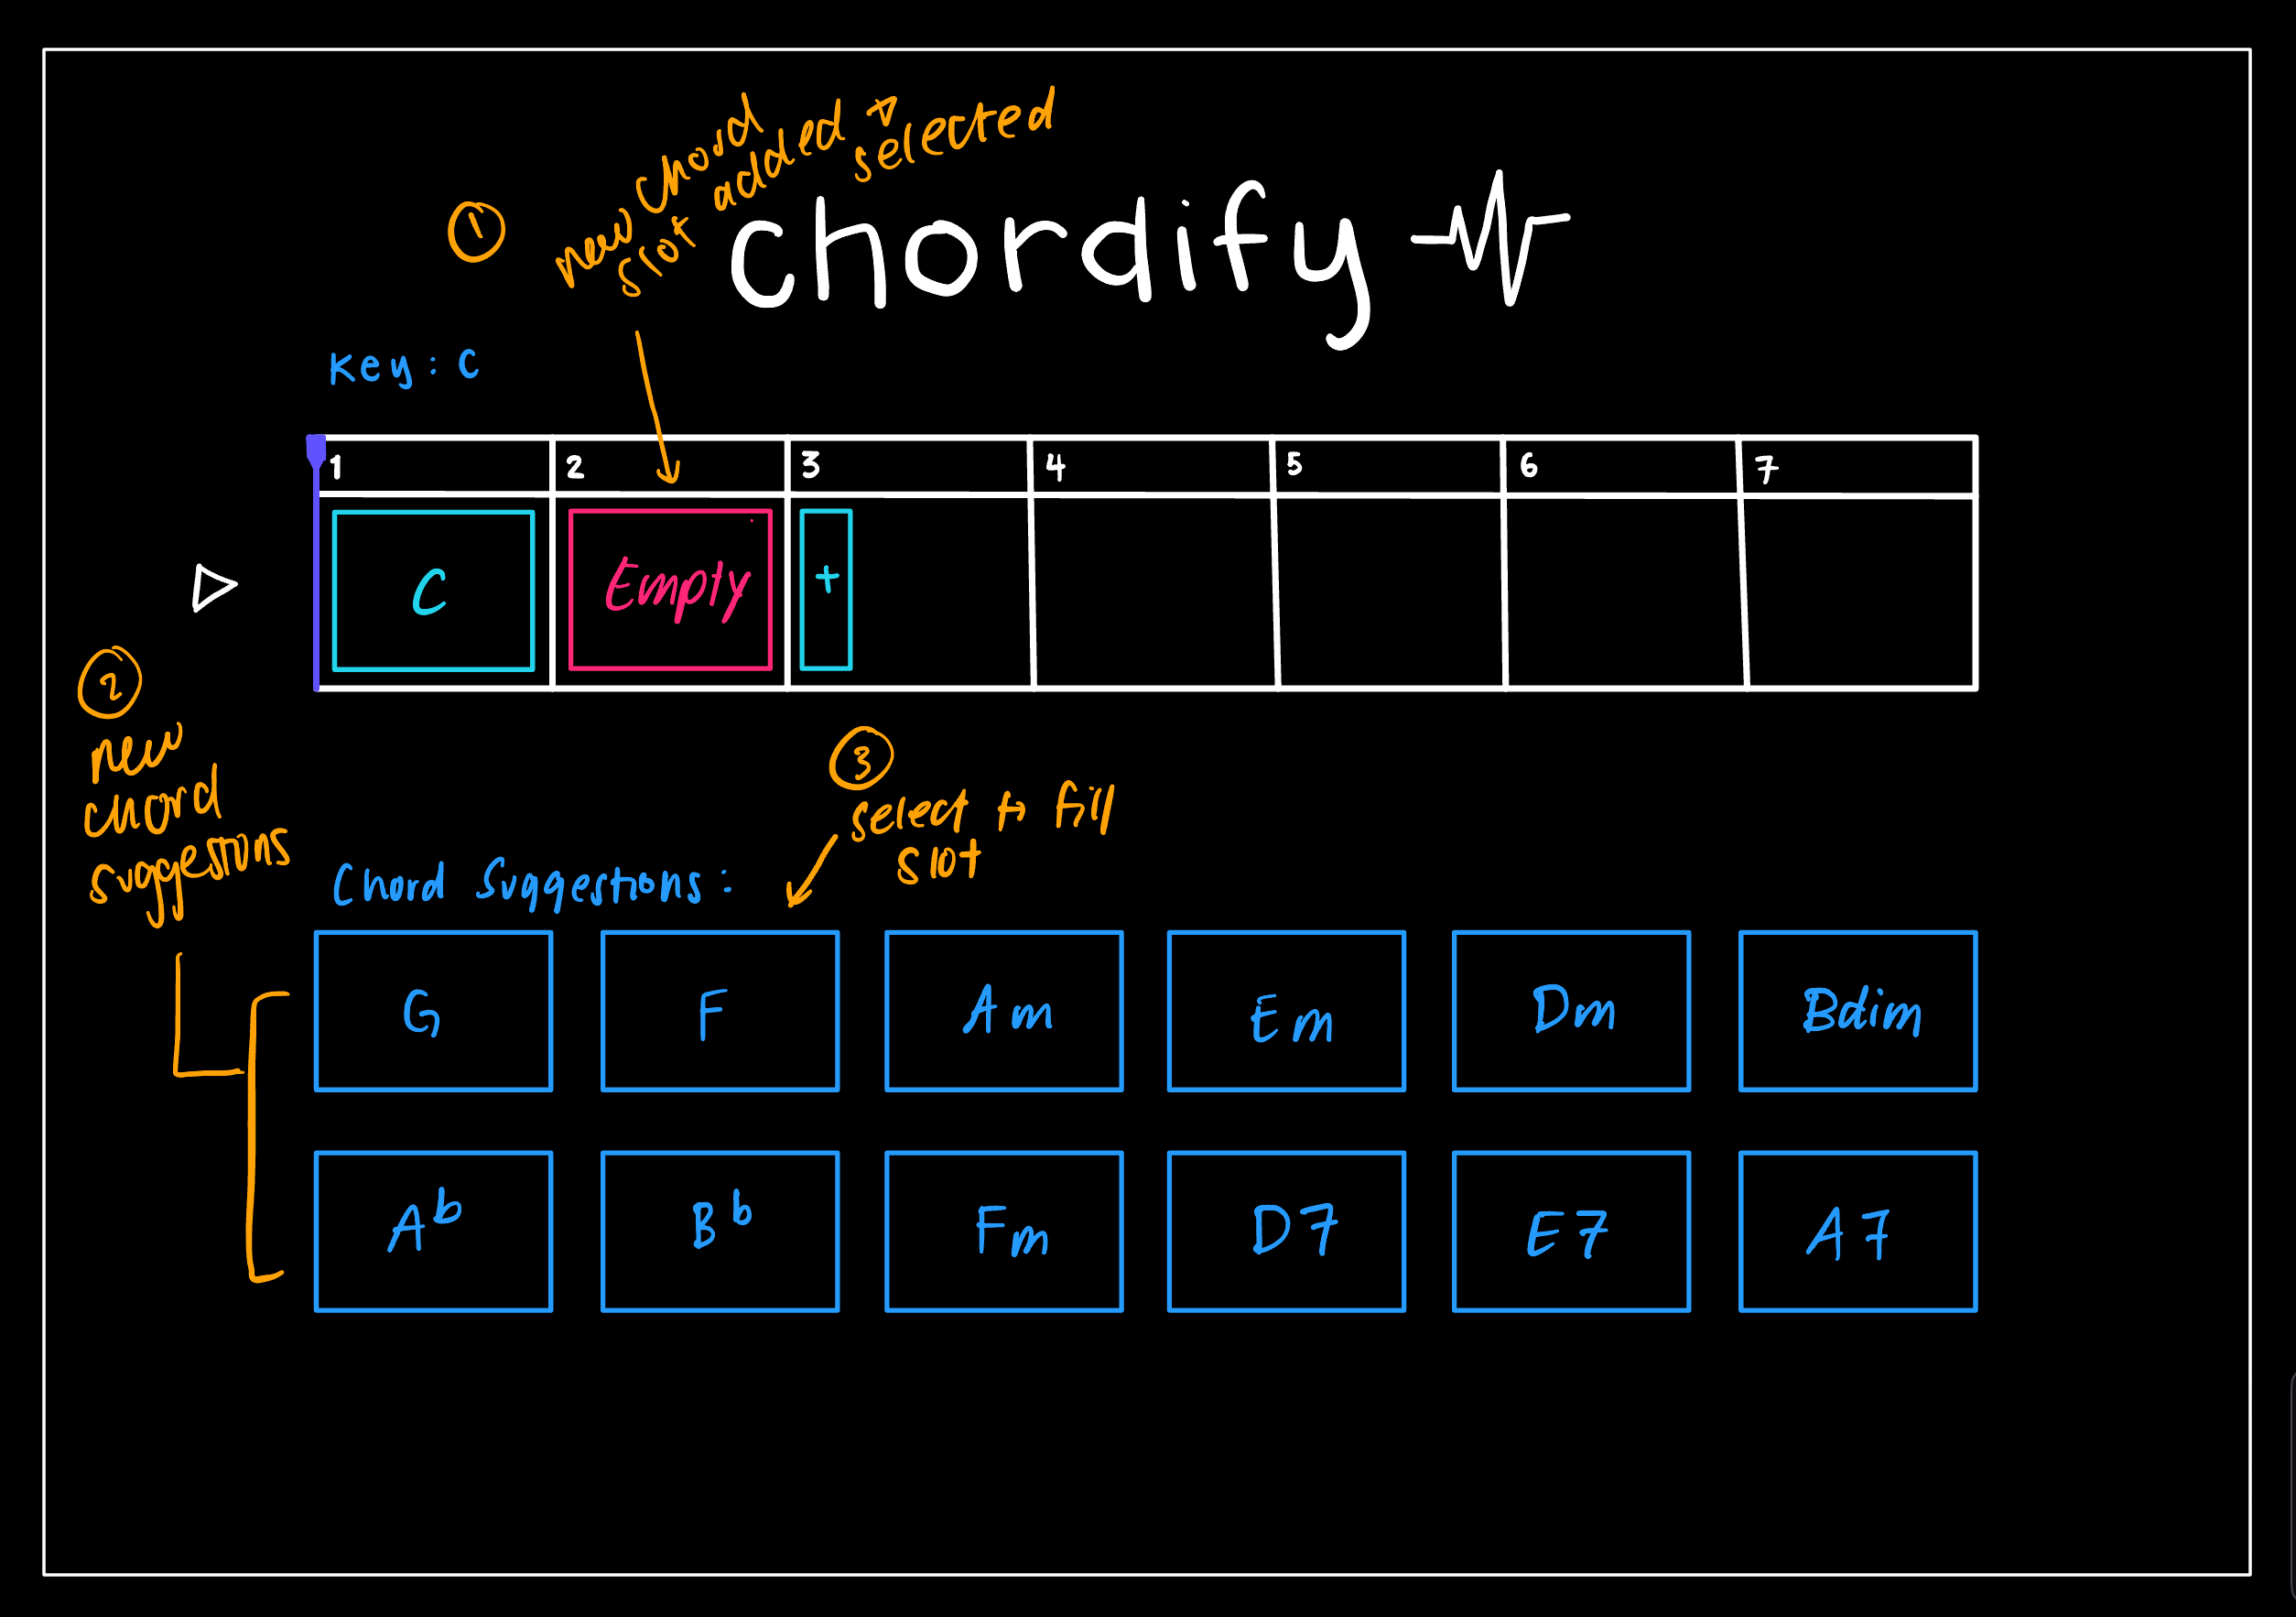 1
new chord
slot added +
selected
chordify
Key: C
1 2 3 4 5 6 7
C Empty +
2
new
chord
suggestions
3
select to fill
slot
Chord Suggestions:
G F Am Em Dm Bdim
Ab Bb Fm D7 E7 A7